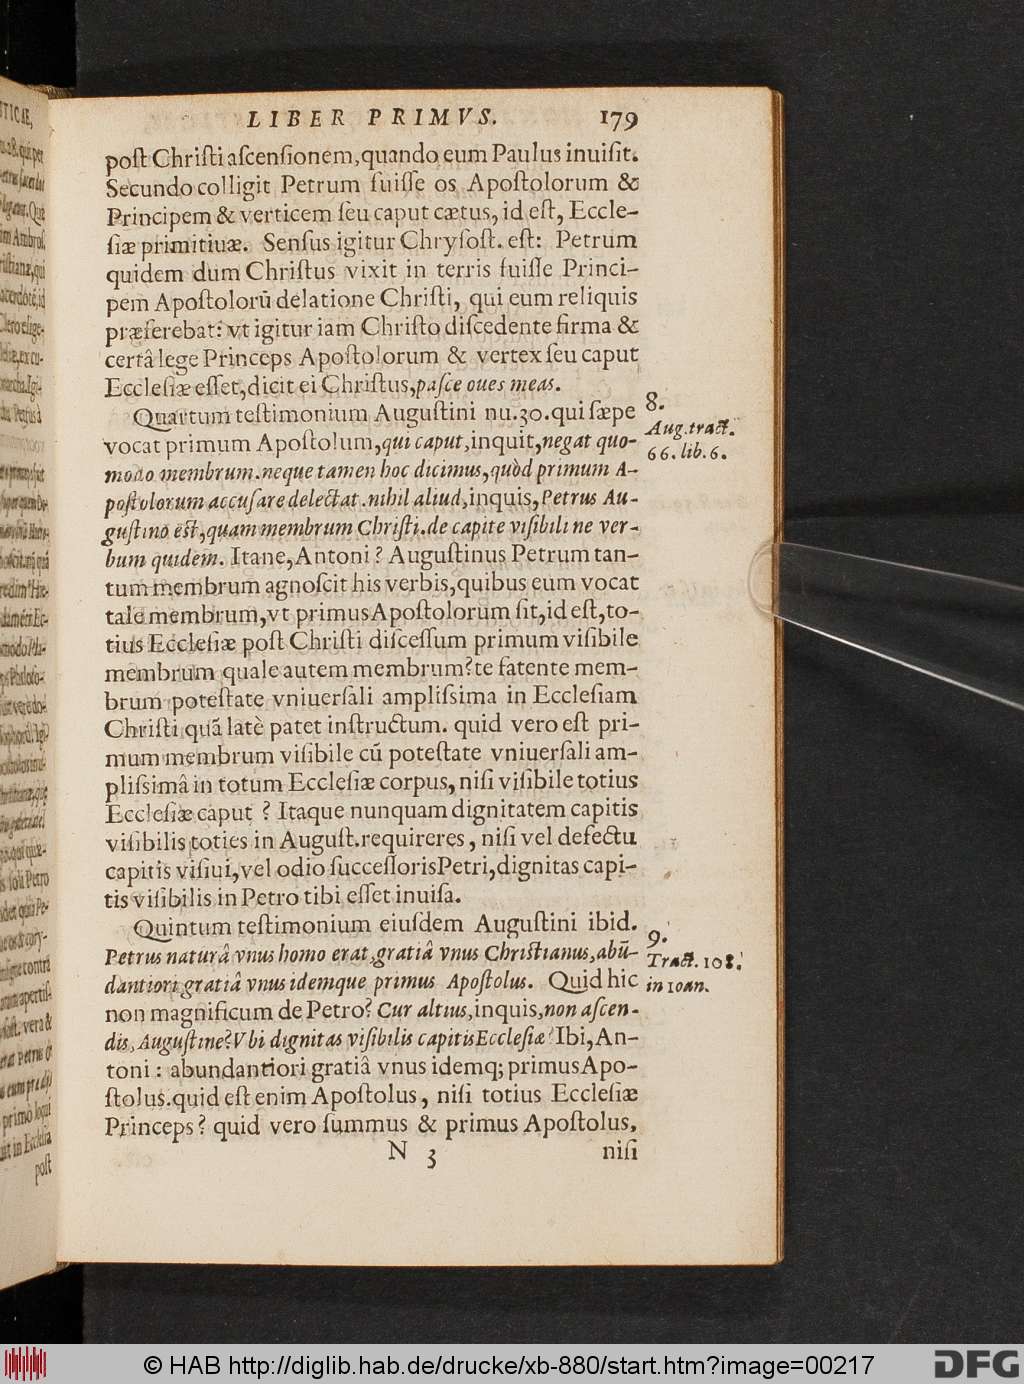 LIBER PRIMVS. 179
poſt Chriſti aſcenſionem, quando eum Paulus inuiſit.
Secundo colligit Petrum fuiſſe os Apoſtolorum &
Principem & verticem ſeu caput cætus, id eſt, Eccle-
ſiæ primitiuæ. Senſus igitur Chryſoſt. eſt: Petrum
quidem dum Chriſtus vixit in terris fuiſſe Princi-
pem Apoſtolorũ delatione Chriſti, qui eum reliquis
præferebat: vt igitur iam Chriſto diſcedente firma &
certâ lege Princeps Apoſtolorum & vertex ſeu caput
Eccleſiæ eſſet, dicit ei Chriſtus, paſce oues meas.
Quartum teſtimonium Auguſtini nu. 30. qui ſæpe
vocat primum Apoſtolum, qui caput, inquit, negat quo-
modo membrum. neque tamen hoc dicimus, quòd primum A-
poſtolorum accuſare delectat. nihil aliud, inquis, Petrus Au-
guſtino eſt, quam membrum Chriſti. de capite viſibili ne ver-
bum quidem. Itane, Antoni? Auguſtinus Petrum tan-
tum membrum agnoſcit his verbis, quibus eum vocat
tale membrum, vt primus Apoſtolorum ſit, id eſt, to-
tius Eccleſiæ poſt Chriſti diſceſſum primum viſibile
membrum quale autem membrum? te fatente mem-
brum poteſtate vniuerſali ampliſsima in Eccleſiam
Chriſti quã latè patet inſtructum. quid vero eſt pri-
mum membrum viſibile cũ poteſtate vniuerſali am-
pliſsimâ in totum Eccleſiæ corpus, niſi viſibile totius
Eccleſiæ caput? Itaque nunquam dignitatem capitis
viſibilis toties in Auguſt. requireres, niſi vel defectu
capitis viſiui, vel odio ſucceſſoris Petri, dignitas capi-
tis viſibilis in Petro tibi eſſet inuiſa.
Quintum teſtimonium eiuſdem Auguſtini ibid.
Petrus naturâ vnus homo erat, gratiâ vnus Chriſtianus, abũ-
dantiori gratiâ vnus idemque primus Apoſtolus. Quid hic
non magnificum de Petro? Cur altius, inquis, non aſcen-
dis, Auguſtine? Vbi dignitas viſibilis capitis Eccleſiæ? Ibi, An-
toni: abundantiori gratiâ vnus idemq; primus Apo-
ſtolus. quid eſt enim Apoſtolus, niſi totius Eccleſiæ
Princeps? quid vero ſummus & primus Apoſtolus,
N 3 niſi
8.
Aug. tract.
66. lib. 6.
9.
Tract. 108.
in Ioan.
© HAB http://diglib.hab.de/drucke/xb-880/start.htm?image=00217
DFG